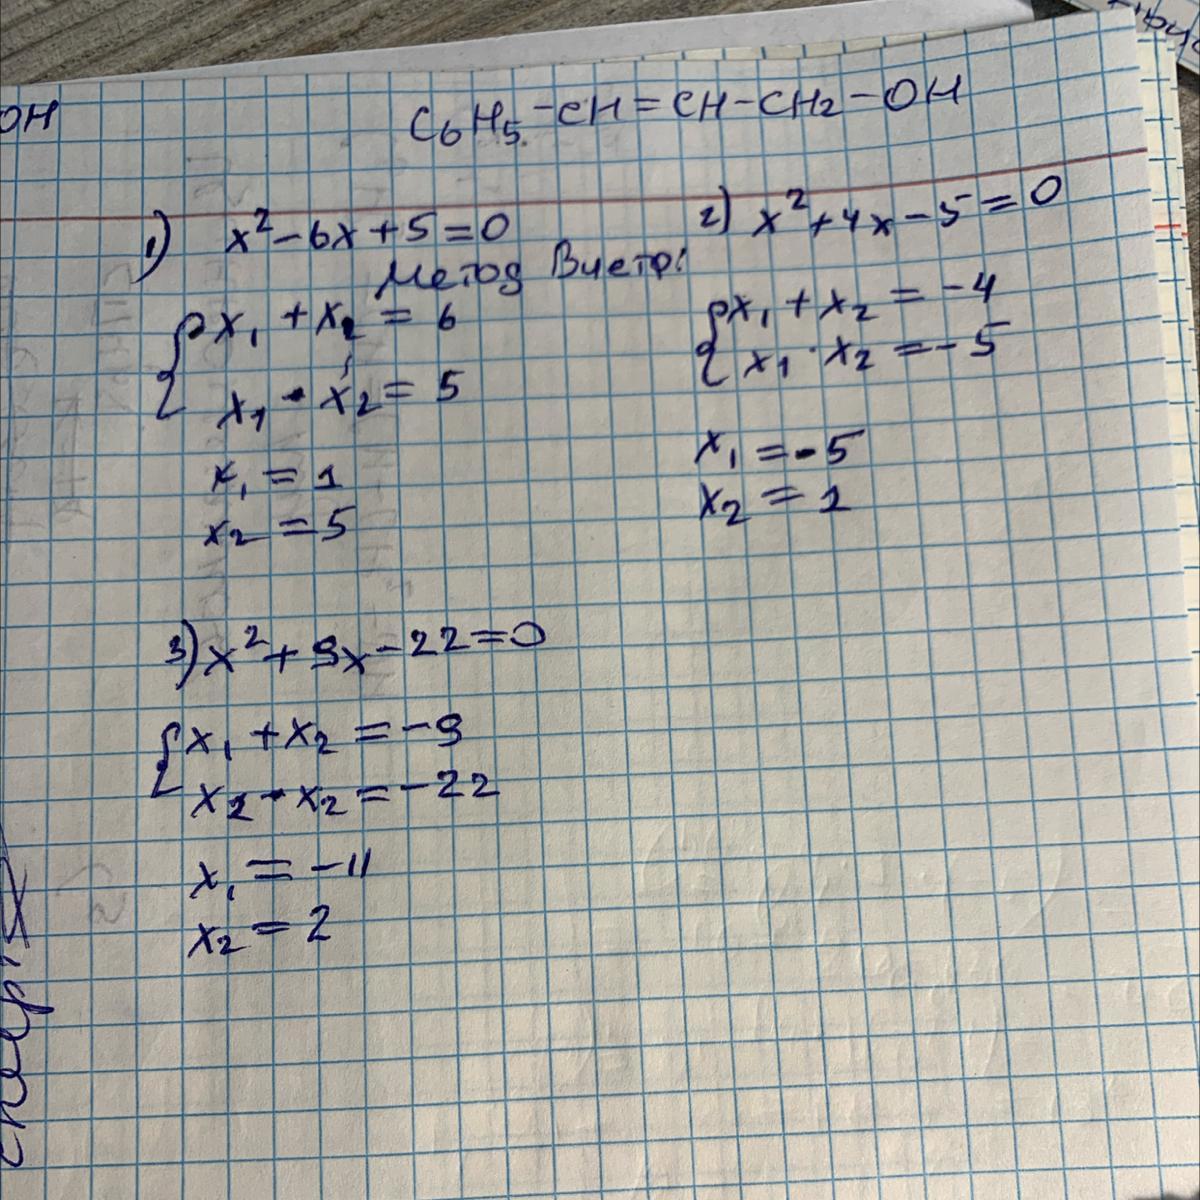 OH
C₆H₅-CH=CH-CH₂-OH
1) x²-6x+5=0
Метод Виета:
x₁+x₂=6
x₁·x₂=5
x₁=1
x₂=5
2) x²+4x-5=0
x₁+x₂=-4
x₁·x₂=-5
x₁=-5
x₂=1
3) x²+9x-22=0
x₁+x₂=-9
x₂·x₂=-22
x₁=-11
x₂=2